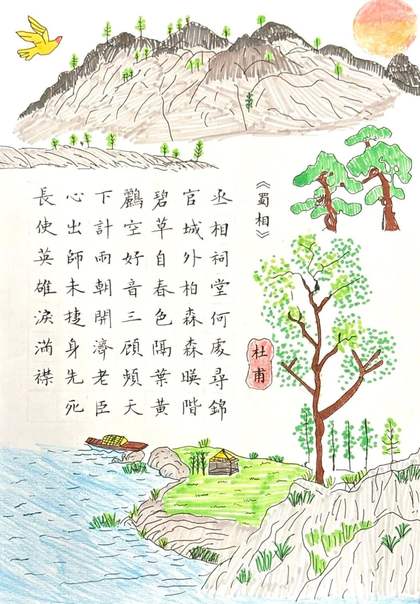 《蜀相》
丞相祠堂何處尋錦
官城外柏森森暎階
碧草自春色隔葉黃
鸝空好音三顧頻天
下計兩朝開濟老臣
心出師未捷身先死
長使英雄淚滿襟
杜甫